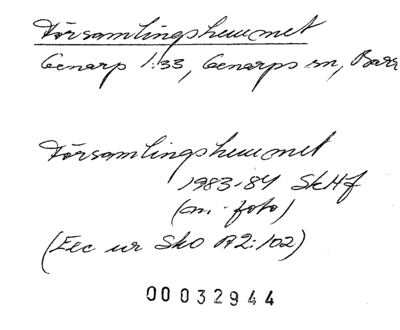 Församlingshemmet
Genarp 1:33, Genarps sn, Bara
Församlingshemmet
1983-84 SkHf
(m. foto)
(Exc ur SkO A2:102)
00032944